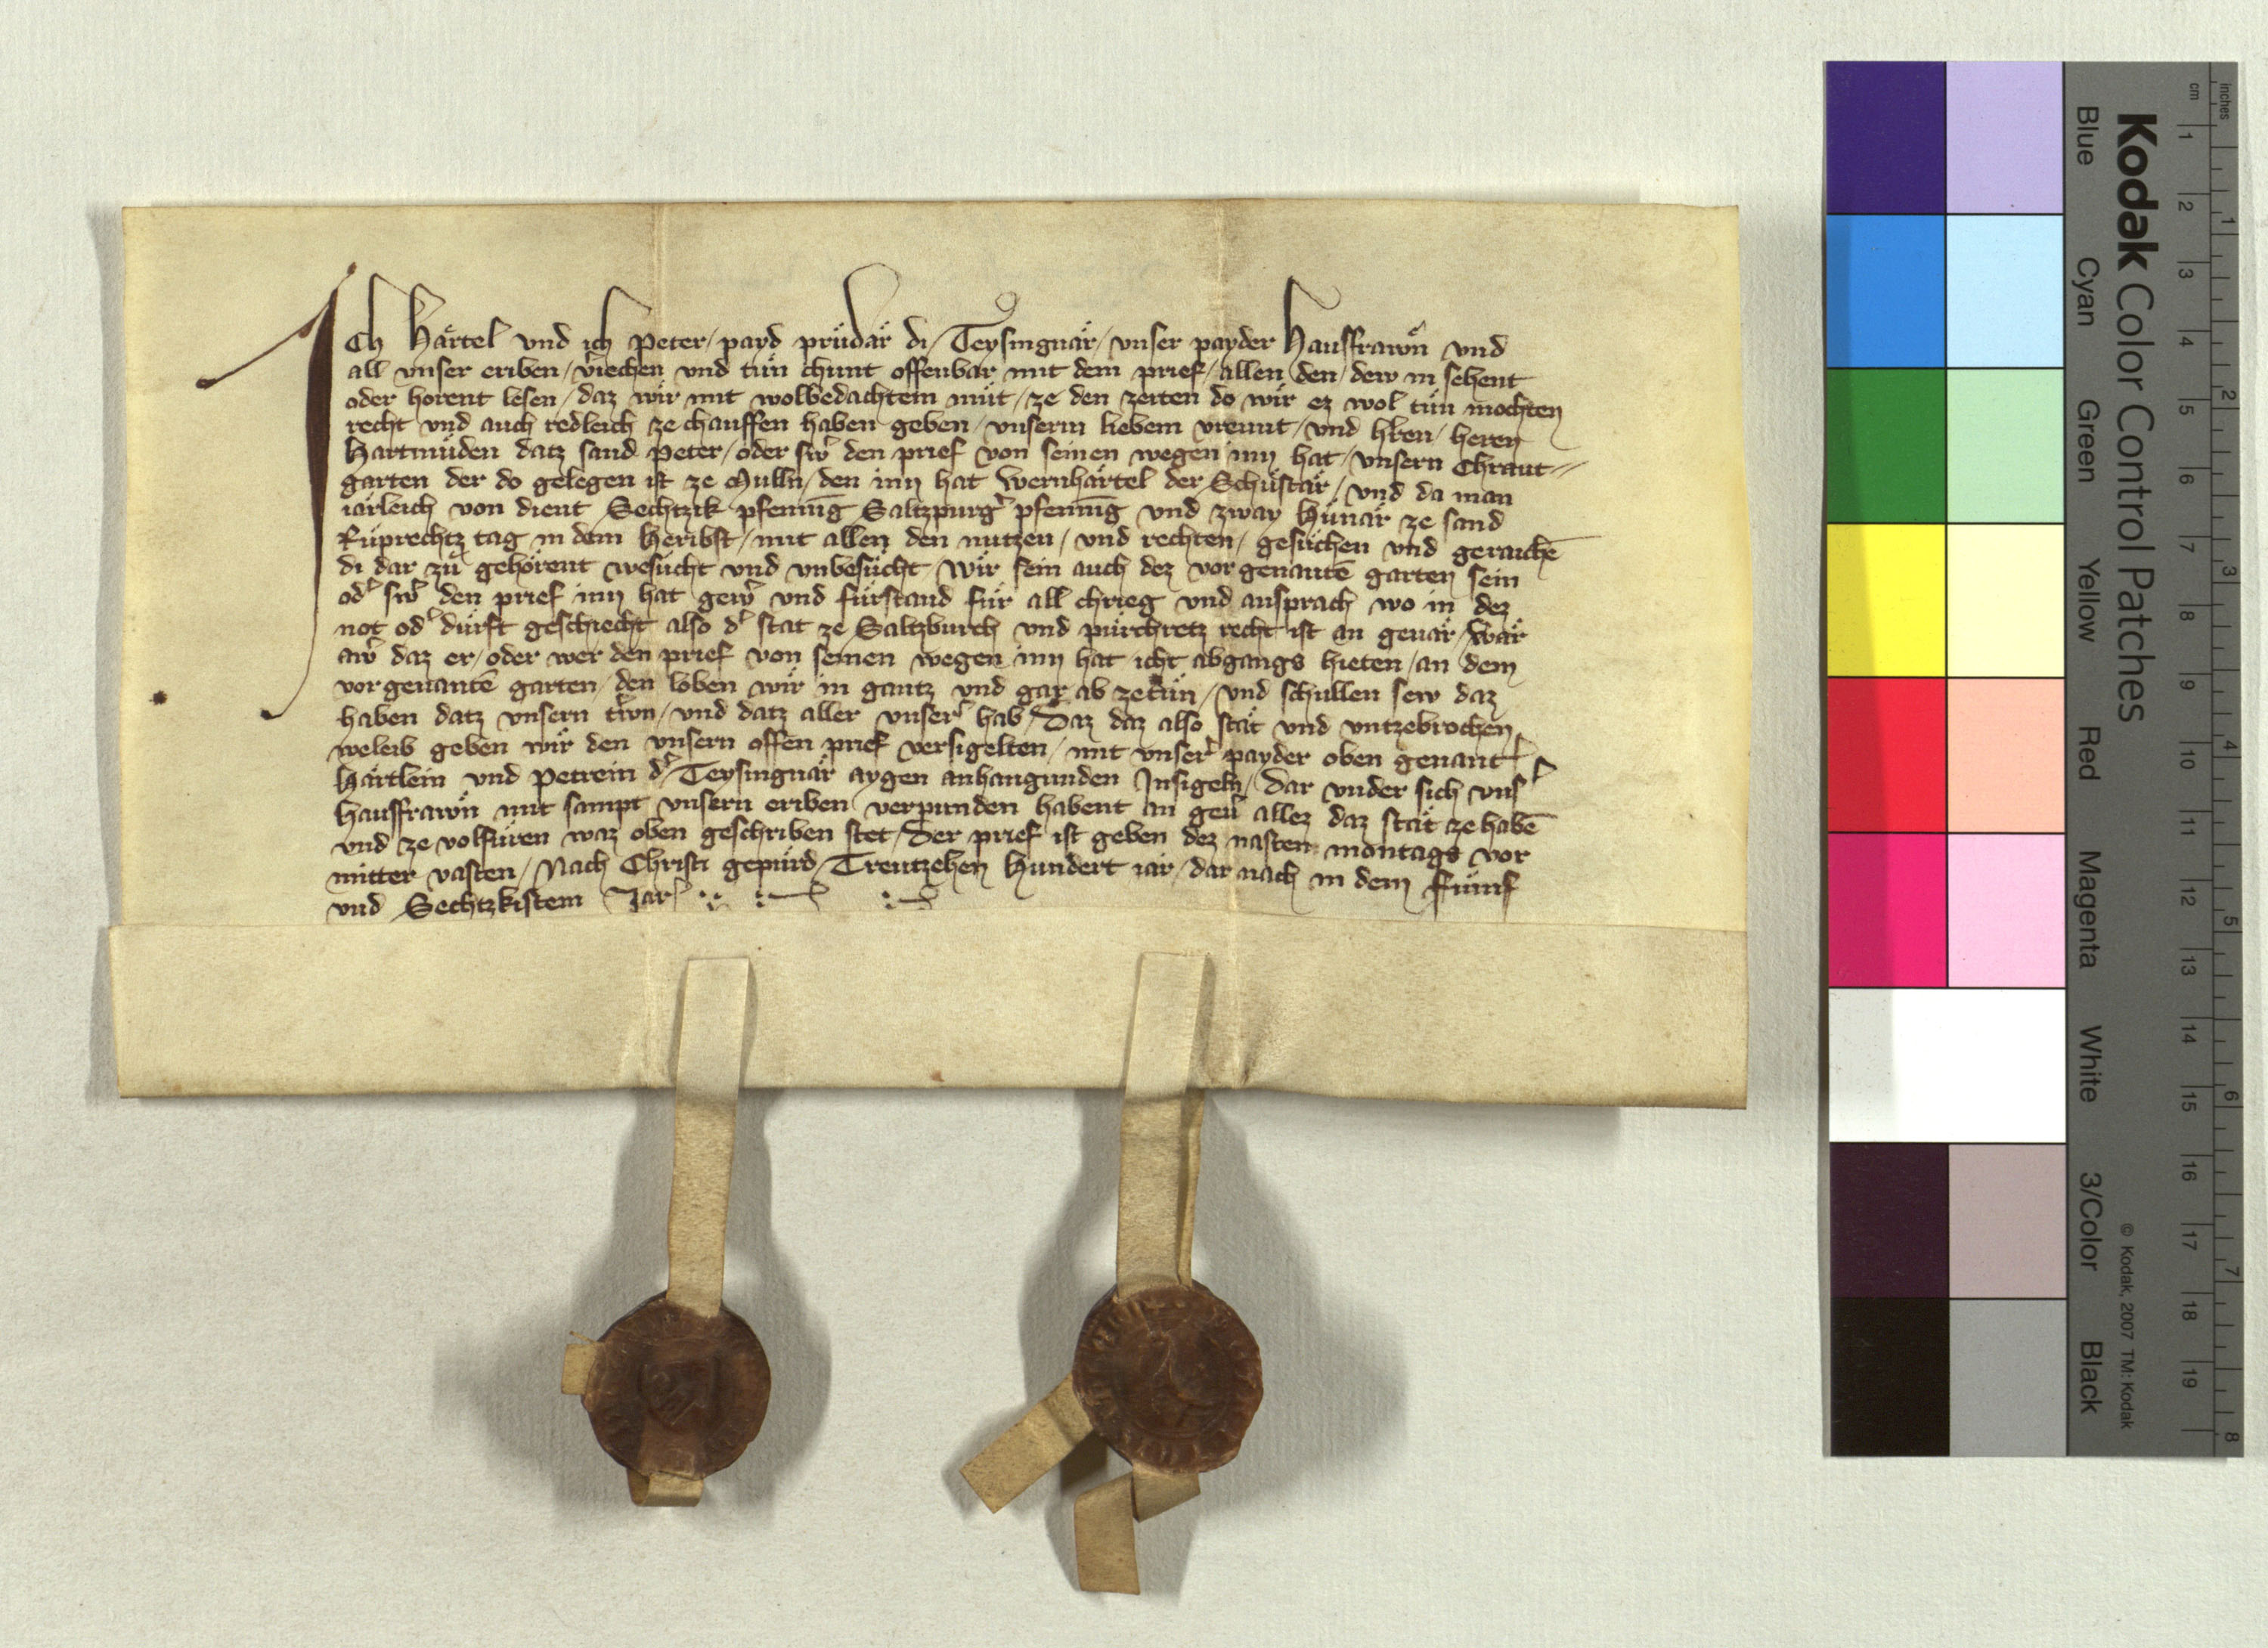 Ich Härtel vnd ich Peter / payd prüdär di / Teysingnär / vnser payder Hausfrawn vnd
all vnser eriben / veriechen vnd tün chunt offenbar mit dem prief / allen den / dew in sehent
oder horent lesen / daz wir mit wolbedachtem müt / ze den zeiten do wir ez wol tün mochten
recht vnd auch redleich ze chauffen haben geben / vnserm liebem vreunt / vnd hren / heren
Hartmüden datz sand Peter / oder swer den prief von seinen wegen inn hat / vnsern Chraut=
garten der do gelegen ist ze Mulln / den inn hat Wernhärtel der Schüstär / vnd da man
iärleich von dient Sechtzik pfenning Saltzpurger pfenning vnd zway Hünär ze sand
Rüprechtz tag in dem Heribst / mit allen den nutzen / vnd rechten / gesüchen vnd geraichē
di dar zü gehörent wesücht vnd vnbesücht / Wir sein auch dez vorgenantē garten sein
oder swer den prief inn hat gewer vnd fürstand für all chrieg vnd ansprach wo in dez
not oder dürft geschiecht also der stat ze Saltzburch vnd pürchretz recht ist an geuär / Wär
awer daz er / oder wer den prief von seinen wegen inn hat icht abgangs hieten / an dem
vorgenantē garten / den loben wir in gantz vnd gar ab zetün / vnd schullen sew daz
haben datz vnsern triwn / vnd datz aller vnser hab / Daz daz also stät vnd vntzebrochen
weleib geben wir den vnsern offen prief versigelten / mit vnser payder oben genant
Härtlein vnd Petrein der Teysingnär aygen anhangunden Insigeln / Dar vnder sich vnser
Hausfrawn mit sampt vnsern eriben verpunden habent an geuer allez daz stät ze habē
vnd ze volfüren waz oben geschriben stet / Der prief ist geben dez nasten montags vor
mitter vasten / Nach Christi gepürd / Treutzehen Hundert iar / dar nach in dem fünf
vnd Sechtzkistem Jar
Kodak Color Control Patches
Blue Cyan Green Yellow Red Magenta White 3/Color Black
© Kodak, 2007 TM: Kodak
cm 1 2 3 4 5 6 7 8 9 10 11 12 13 14 15 16 17 18 19
inches 1 2 3 4 5 6 7 8